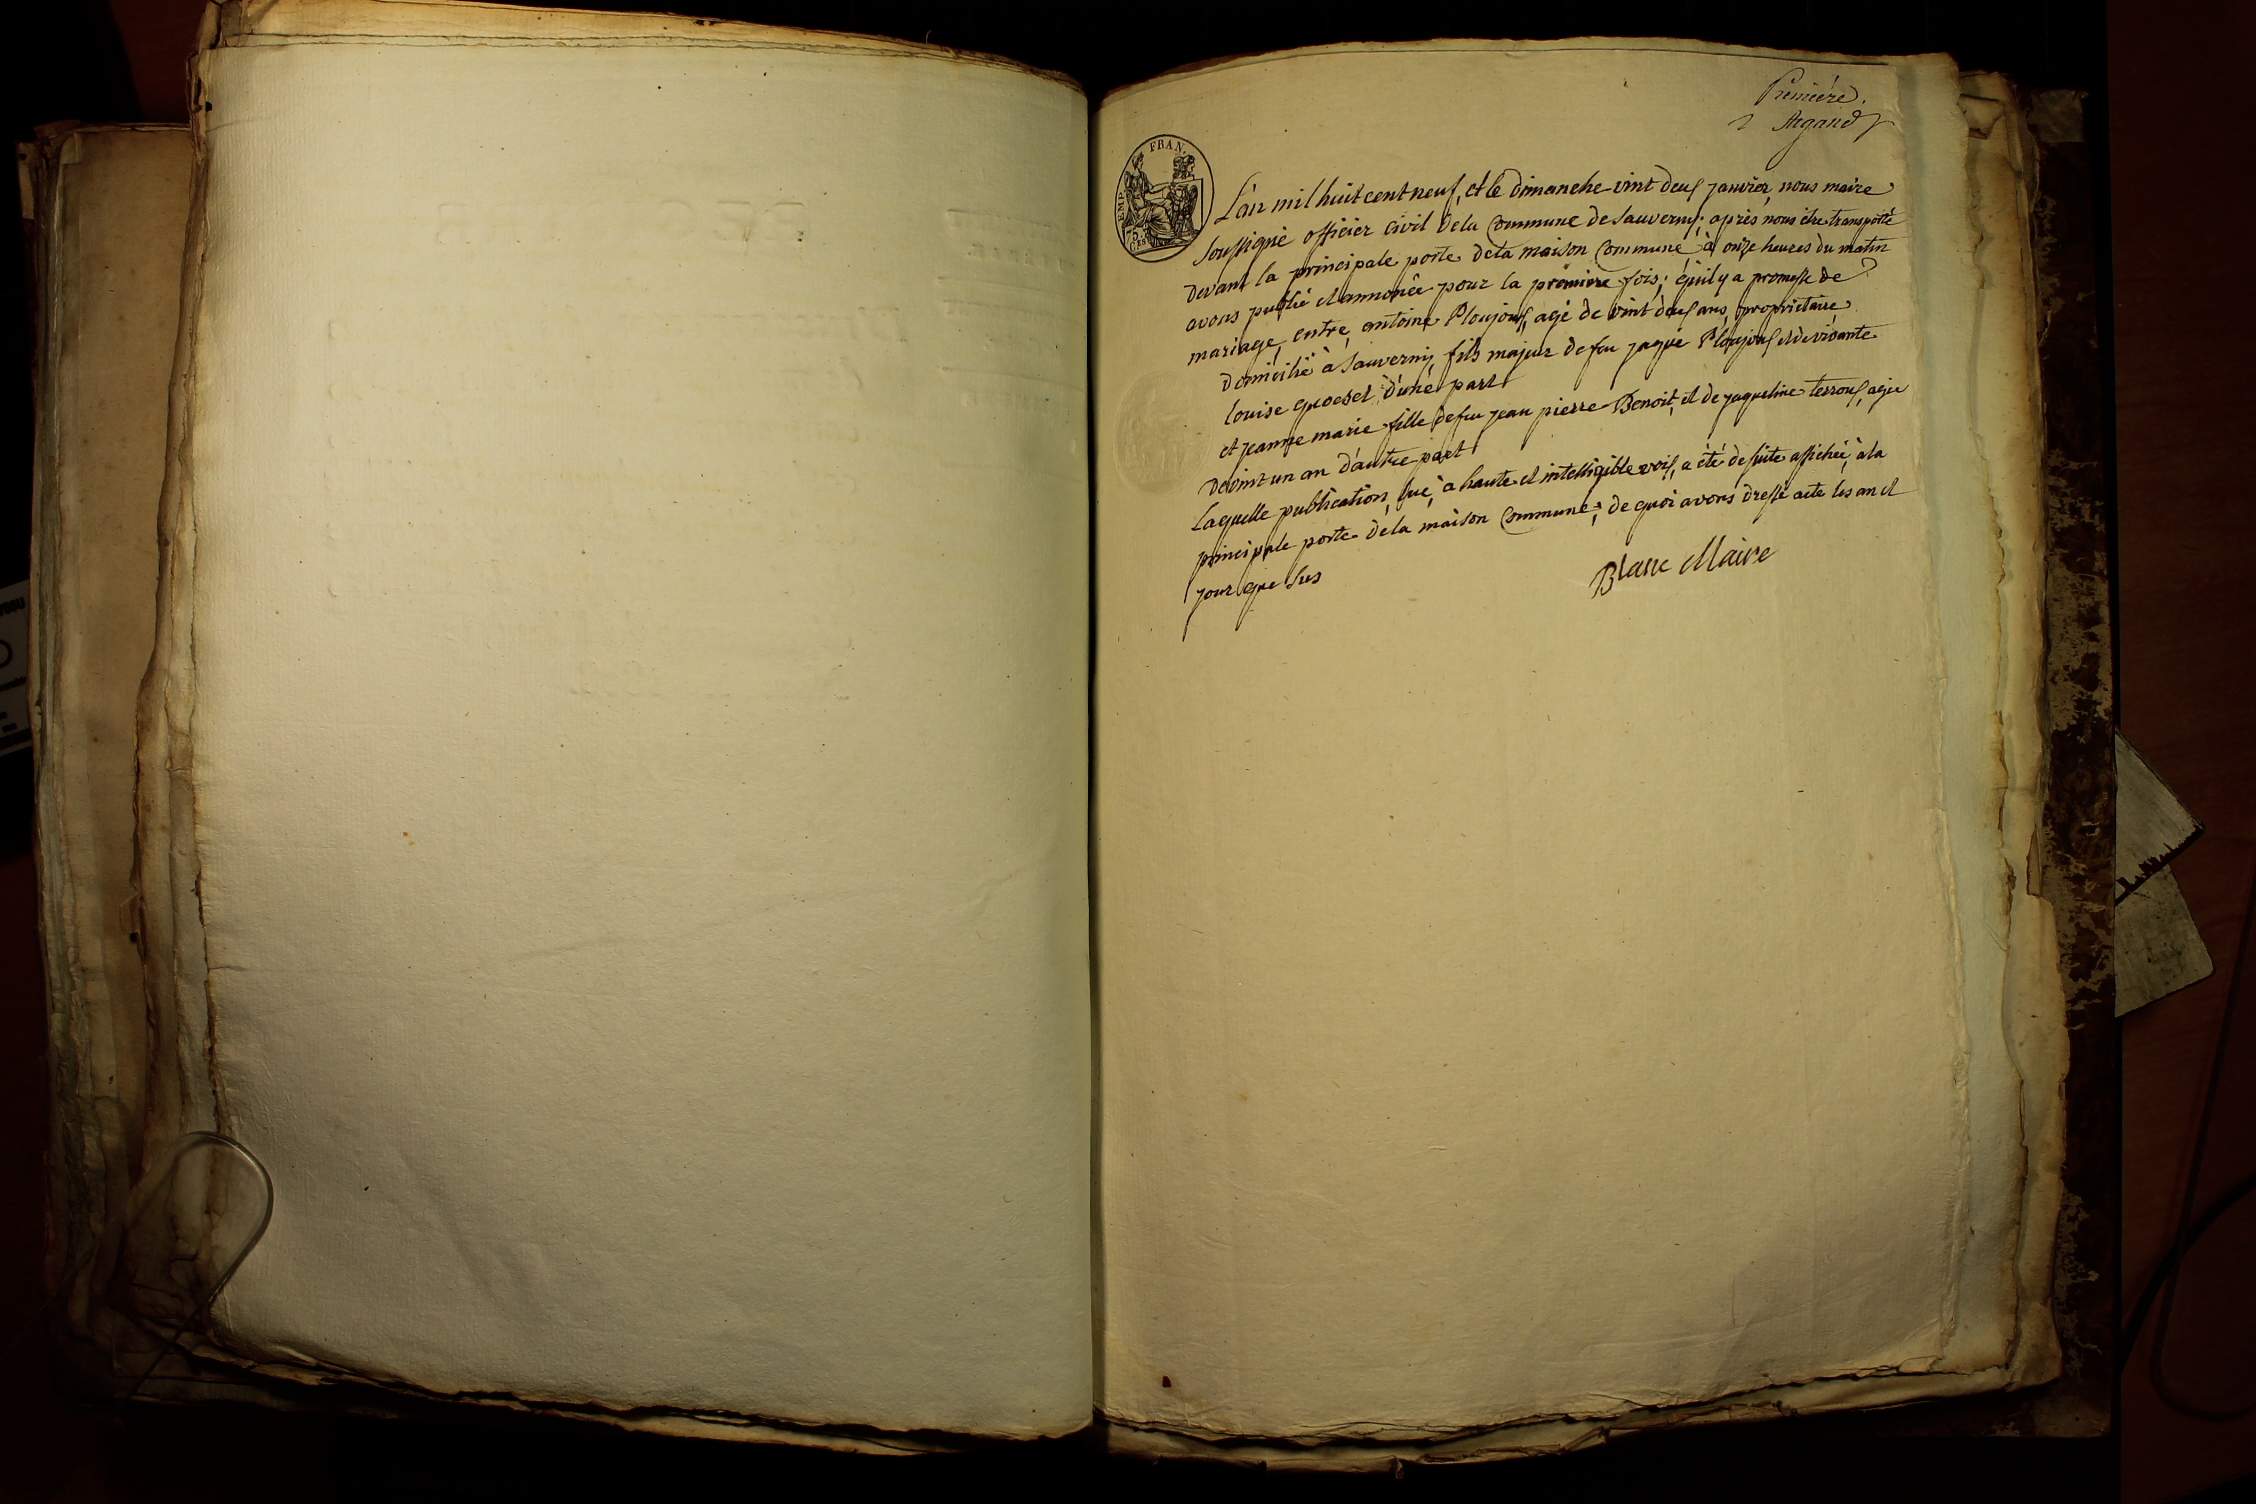 Premiere.
Argand
EMP. FRAN.
75. C
L'an mil huit cent neuf, et le dimanche vint deux janvier, nous maire
soussigné officier civil de la Commune de Sauverny; après nous être transporté
devant la principale porte de la maison Commune, à onze heures du matin
avons publié et annoncée pour la première fois; quil y a promesse de
mariage, entre, antoine Ploujoux, agé de vint deux ans, propriétaire
domicilié à Sauverny fils majeur de feu jaque Ploujoux et de vivante
louise d'une part
et jeanne marie fille de feu jean pierre Benoit, et de jaqueline terroux, agée
de vint un an d'autre part
Laquelle publication, lue, à haute et intelligible voix, a été de suite affichée, à la
principale porte de la maison Commune; de quoi avons dressé acte les an et
jour que sus
Blanc Maire